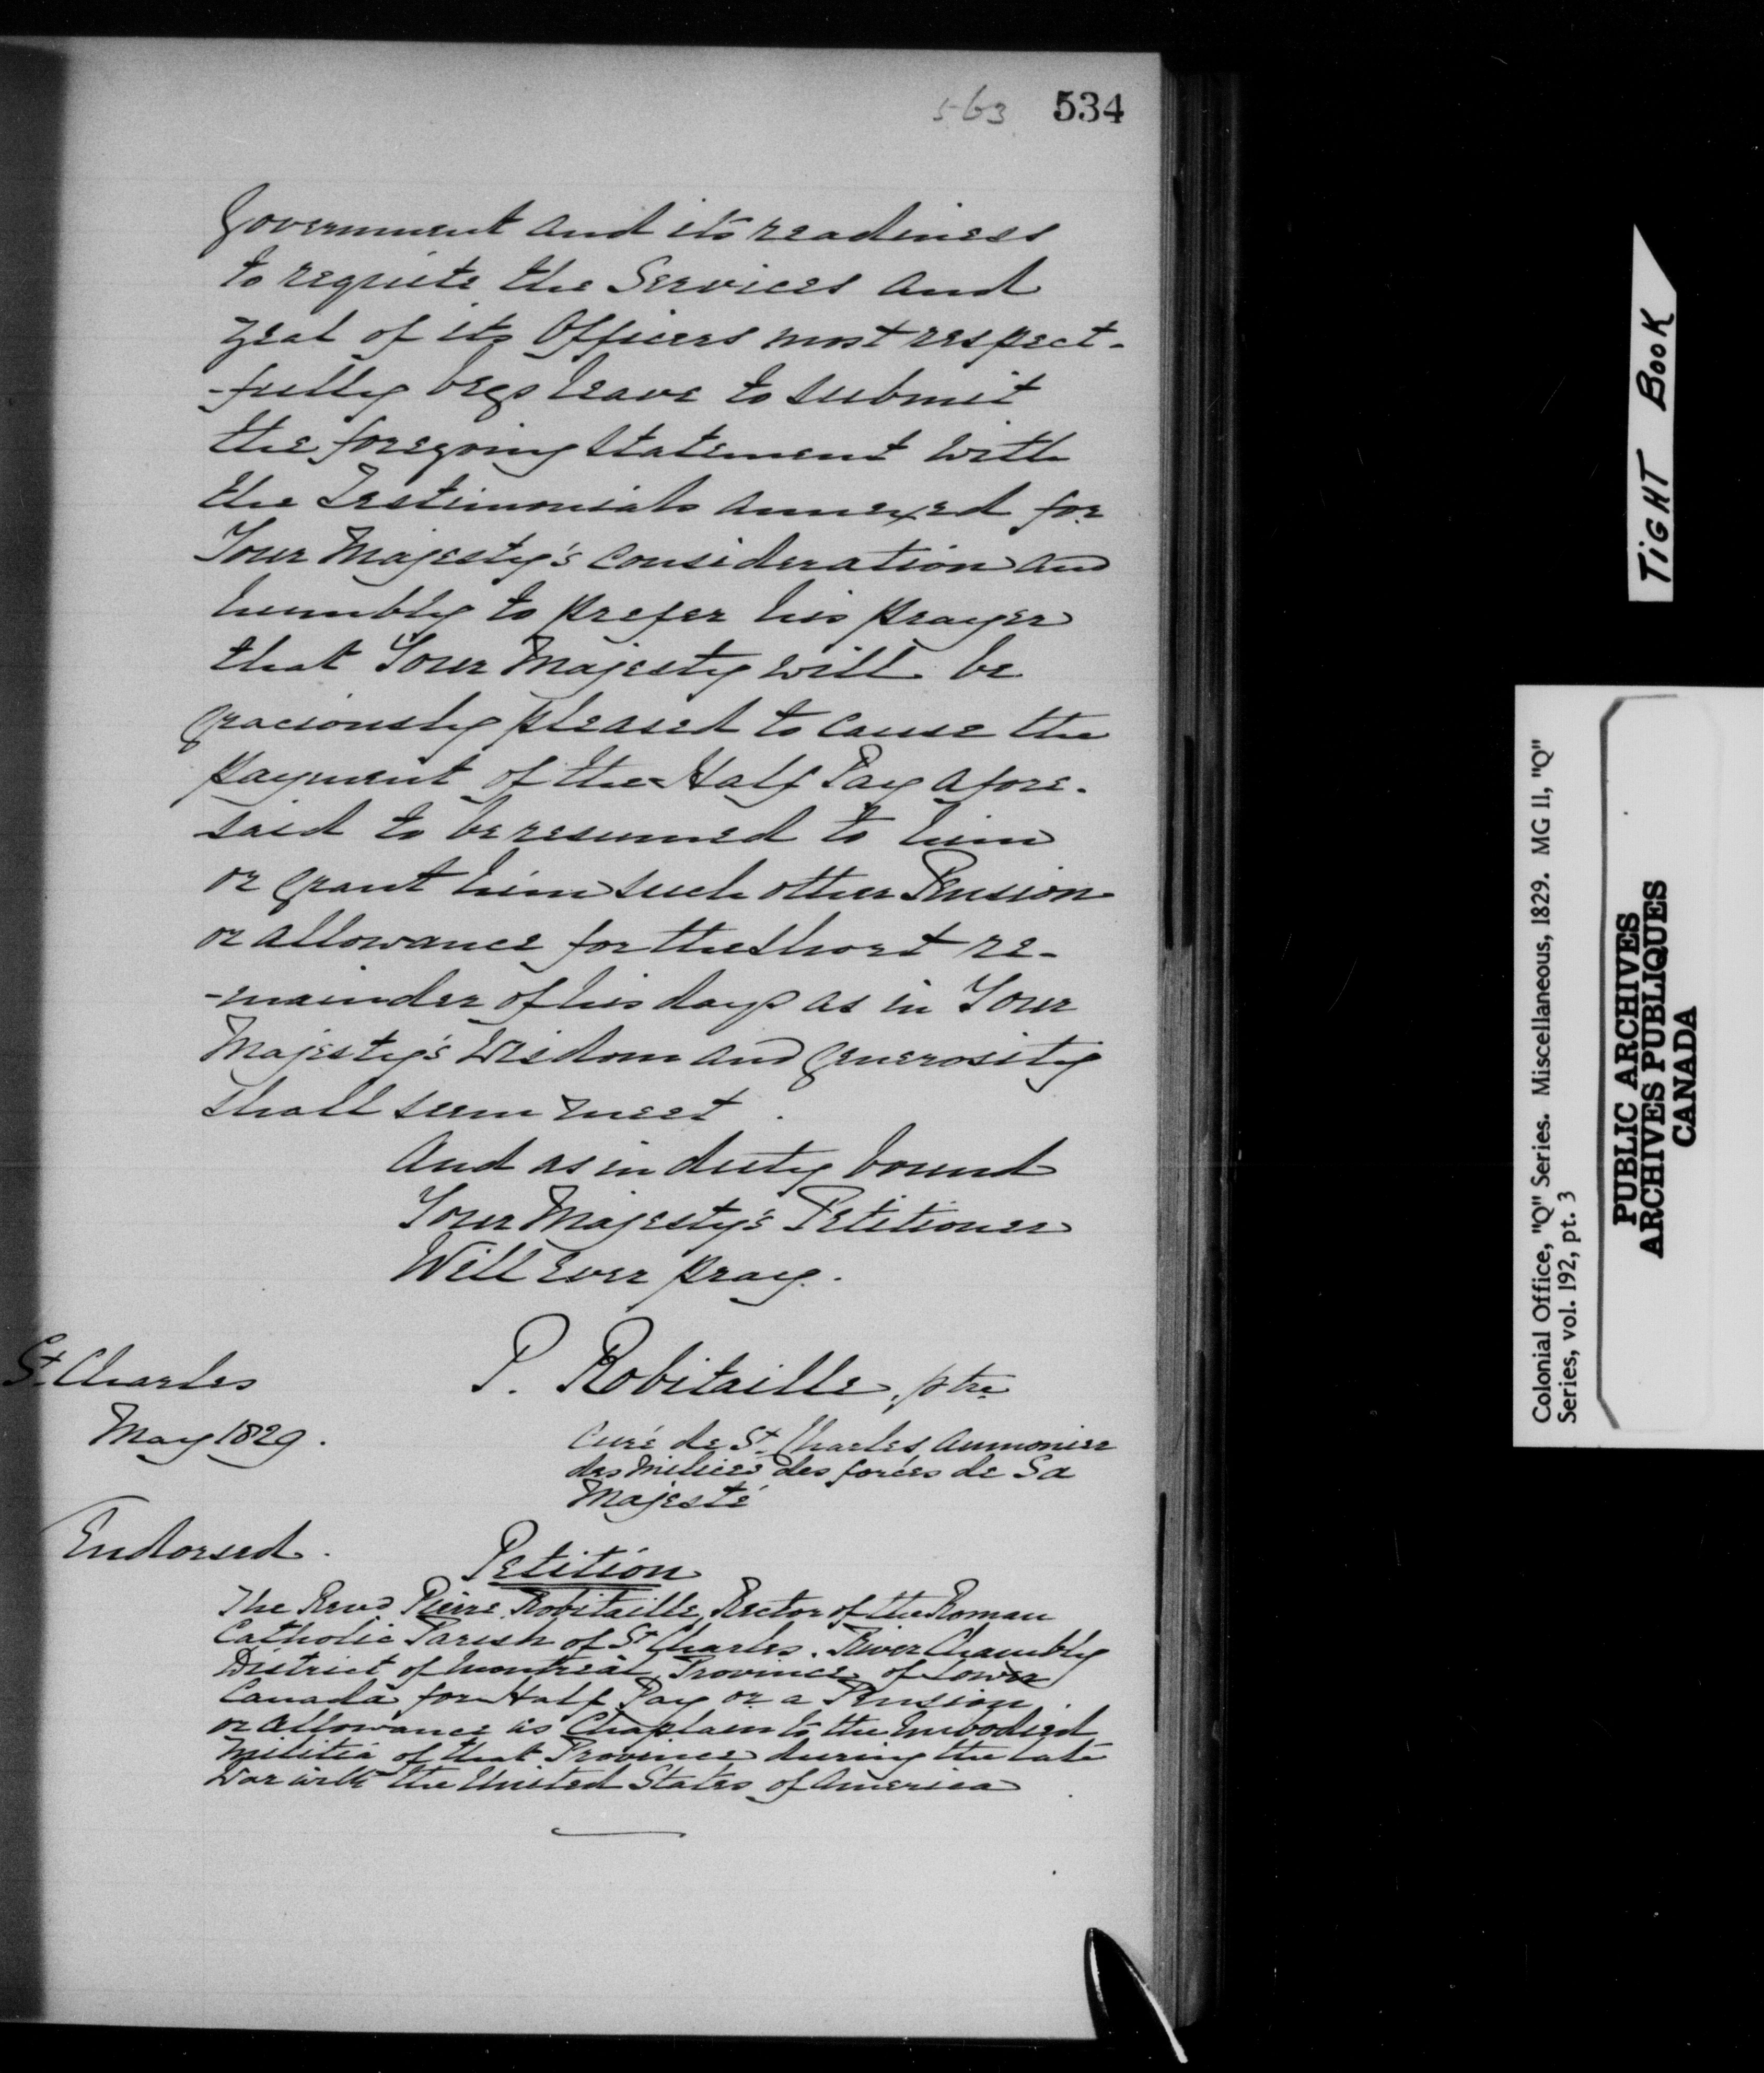 563 534
Government and its readiness
to requite the Services and
zeal of its Officers most respect-
-fully begs leave to submit
the foregoing Statement with
the Testimonials annexed for
Your Majesty's consideration and
humbly to prefer his prayer
that Your Majesty will be
graciously pleased to cause the
payment of the Half Pay afore-
said to be resumed to him
or grant him such other Pension
or allowance for the short re-
-mainder of his days as in Your
Majesty's Wisdom and generosity
shall seem meet.
And as in duty bound
Your Majesty's Petitioner
Will Ever pray.
P. Robitaille, ptre
St. Charles
May 1829.
Curé de St. Charles Aumonier
des Milices des forces de Sa
Majesté
Endorsed.
Petition
The Revd Pierre Robitaille, Rector of the Roman
Catholic Parish of St Charles. River Chambly
District of Montreal Province of Lower
Canada for Half Pay or a Pension
or allowance as Chaplain to the Embodied
Militia of that Province during the late
War with the United States of America
TIGHT BOOK
Colonial Office, "Q" Series. Miscellaneous, 1829. MG 11, "Q"
Series, vol. 192, pt. 3
PUBLIC ARCHIVES
ARCHIVES PUBLIQUES
CANADA